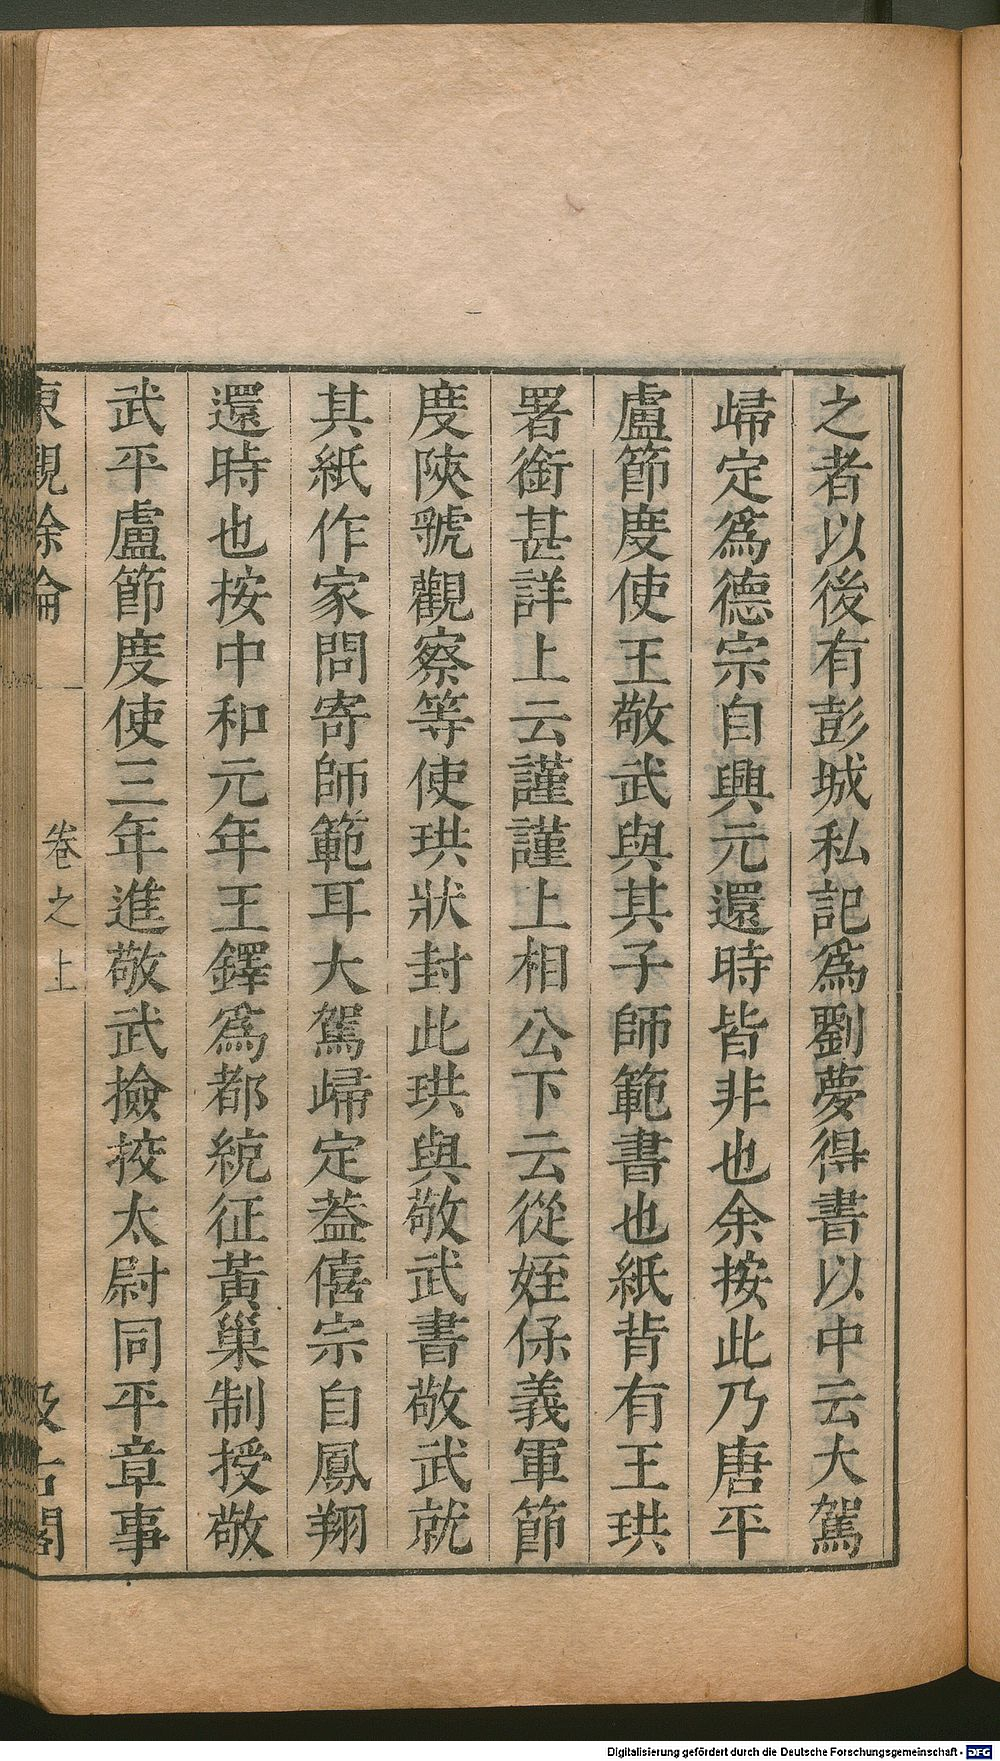 之者以後有彭城私記爲劉夢得書以中云大駕
歸定爲德宗自興元還時皆非也余按此乃唐平
盧節度使王敬武與其子師範書也紙背有王珙
署銜甚詳上云謹謹上相公下云從姪保義軍節
度陜虢觀察等使珙狀封此珙與敬武書敬武就
其紙作家問寄師範耳大駕歸定葢僖宗自鳳翔
還時也按中和元年王鐸爲都統征黃巢制授敬
武平盧節度使三年進敬武撿挍太尉同平章事
東觀餘論
卷之上
汲古閣
Digitalisierung gefördert durch die Deutsche Forschungsgemeinschaft - DFG